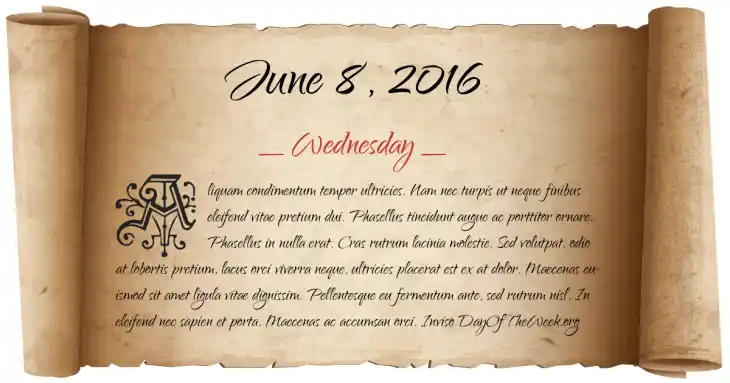 June 8, 2016
— Wednesday —
Aliquam condimentum tempor ultricies. Nam nec turpis ut neque finibus
eleifend vitae pretium dui. Phasellus tincidunt augue ac porttitor ornare.
Phasellus in nulla erat. Cras rutrum lacinia molestie. Sed volutpat, odio
at lobortis pretium, lacus orci viverra neque, ultricies placerat est ex at dolor. Maecenas eu-
ismod sit amet ligula vitae dignissim. Pellentesque eu fermentum ante, sed rutrum nisl. In
eleifend nec sapien et porta. Maecenas ac accumsan orci. Inviso DayOfTheWeek.org